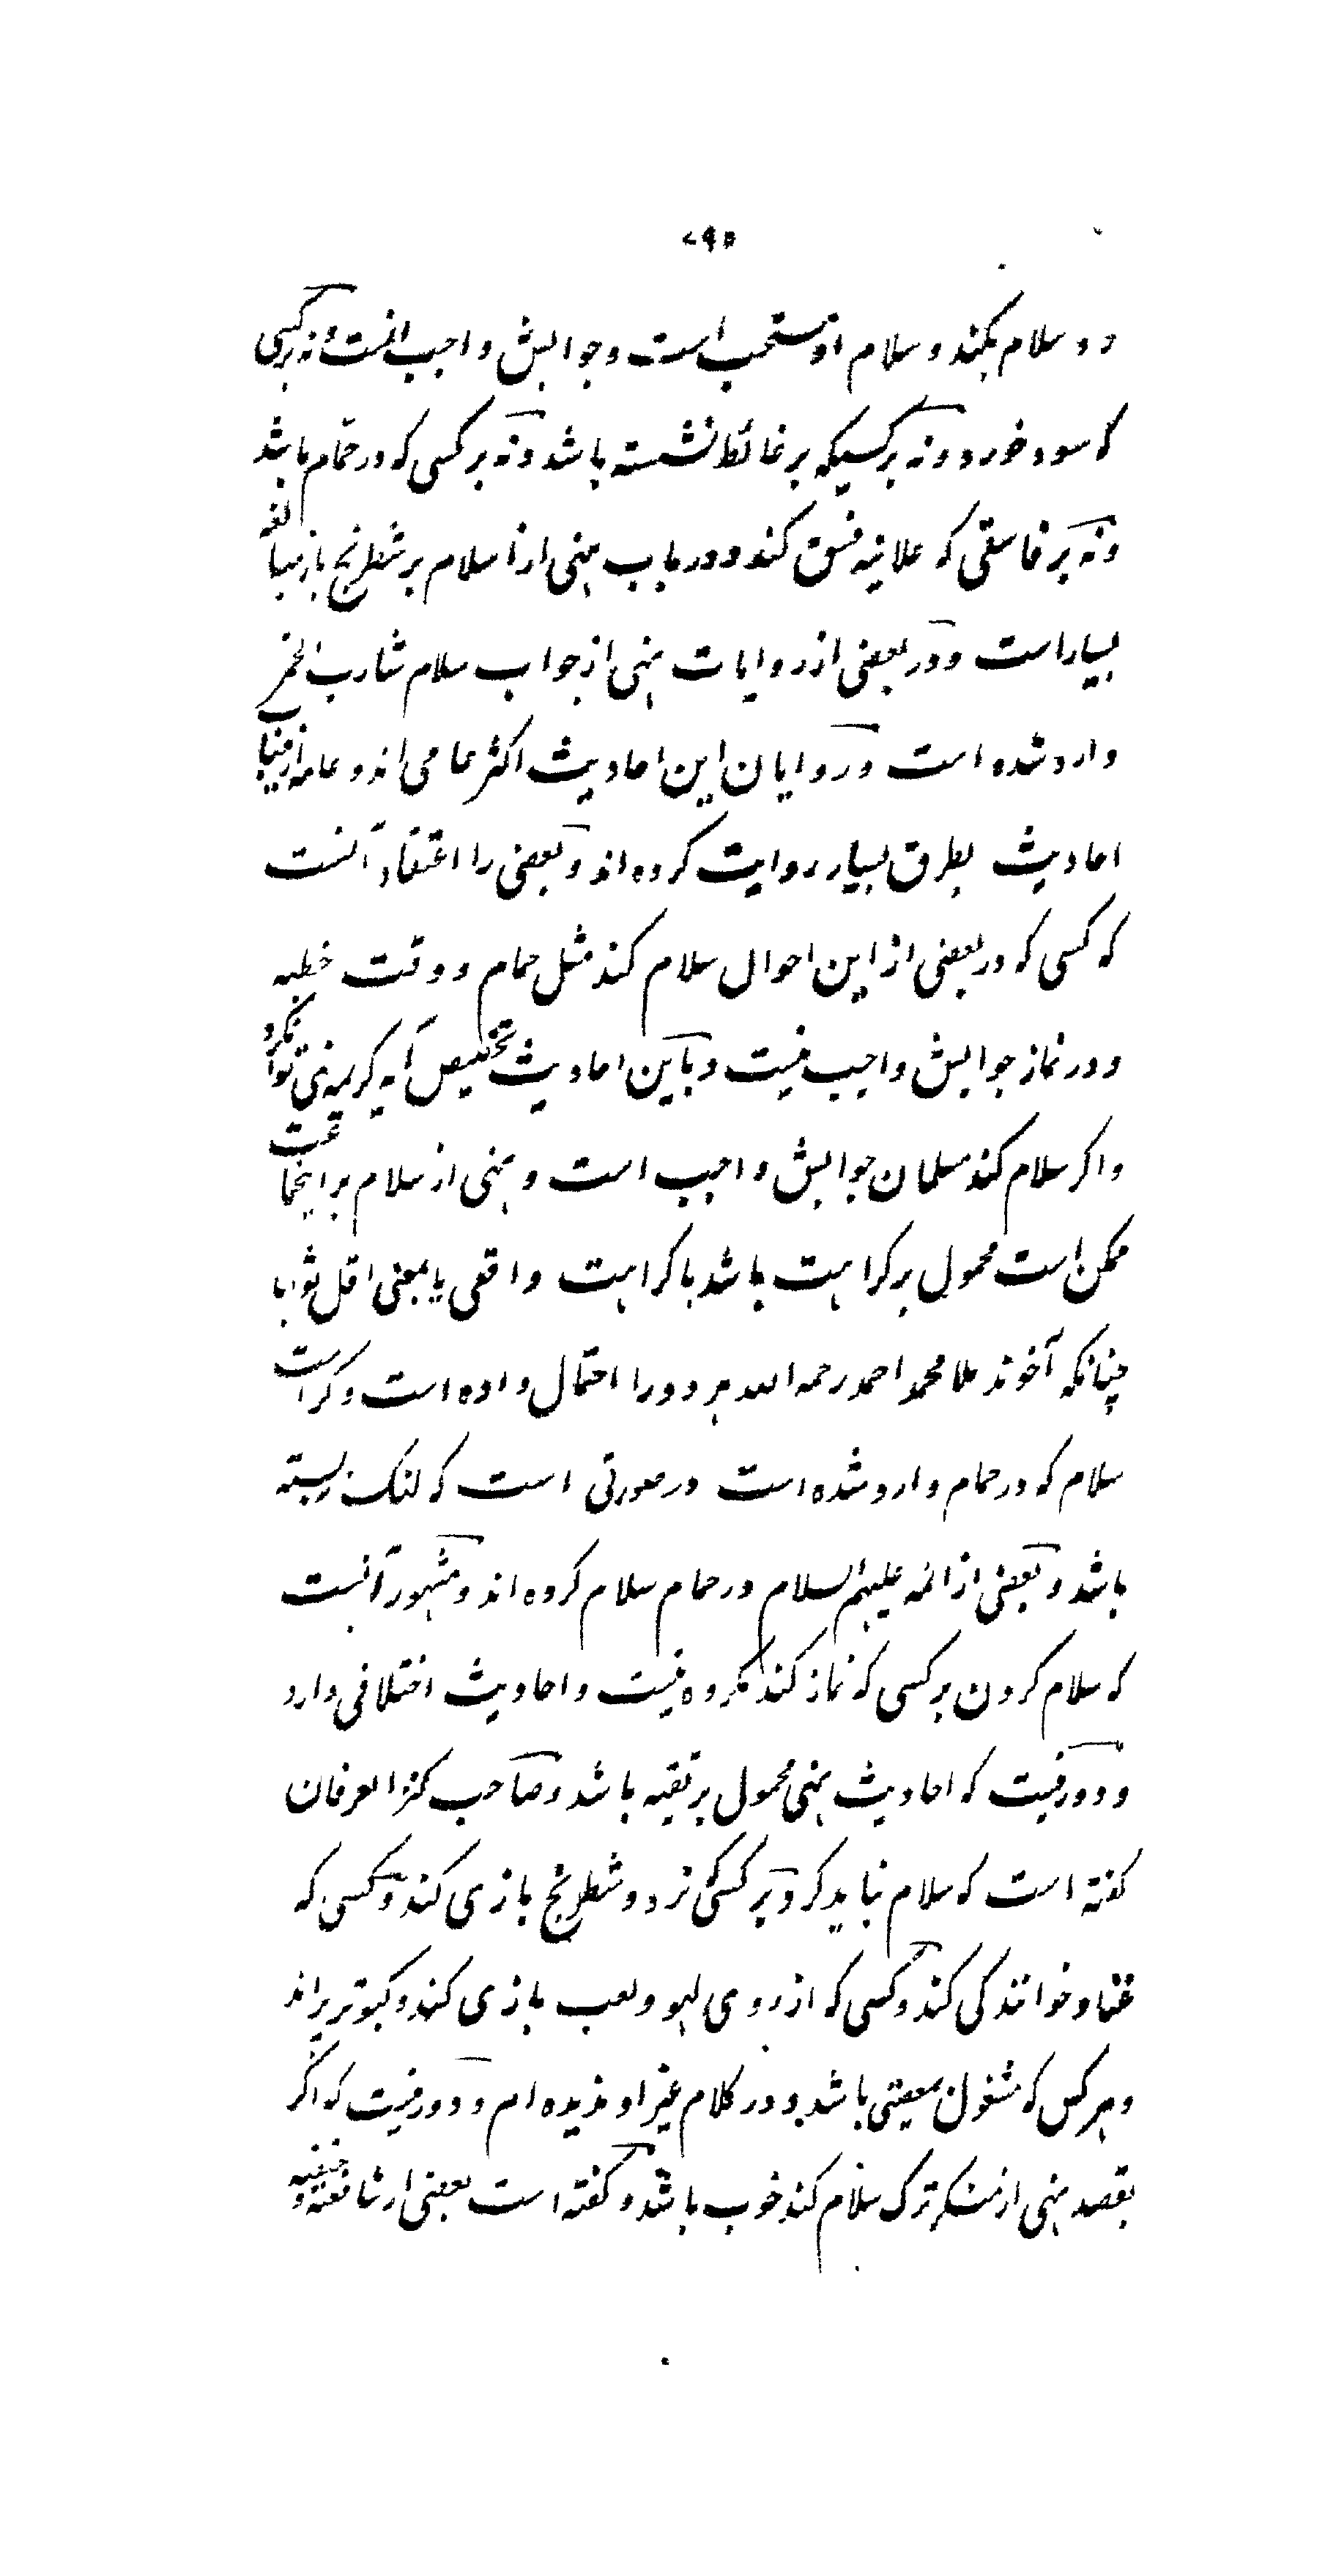 ۷۹۵
دو سلام بکند و سلام او مستحب است و جوابش واجب است و نه بر کسی
که سود خورد و نه بر کسیکه بر غائط نشسته باشد و نه بر کسی که در حمّام باشد
و نه بر فاسقی که علانیه فسق کند و در باب نهی از سلام بر شطرنج باز مبالغه
بسیار است و در بعضی از روایات نهی از جواب سلام شارب الخمر
وارد شده است و راویان این احادیث اکثر عامی اند و عامه
احادیث بطرق بسیار روایت کرده اند و بعضی را اعتقاد آنست
که کسی که در بعضی از این احوال سلام کند مثل حمام و وقت خطبه
و در نماز جوابش واجب نیست و باین احادیث تخصیص آیه کریمه نمی توان کرد
و اکر سلام کند مسلمان جوابش واجب است و نهی از سلام بر اینجماعت
ممکن است محمول بر کراهت باشد یا کراهت واقعی یا بمعنی اقل ثوابا
چنانکه آخوند ملا محمد احمد رحمه الله هر دو را احتمال داده است و کراهت
سلام که در حمام وارد شده است در صورتی است که لنک نبسته
باشد و بعضی از ائمه علیهم السلام در حمام سلام کرده اند و مشهور آنست
که سلام کردن بر کسی که نماز کند مکروه نیست و احادیث اختلافی دارد
و دور نیست که احادیث نهی محمول بر تقیه باشد و صاحب کنز العرفان
کفته است که سلام نباید کرد بر کسی که نرد و شطرنج بازی کند و کسی که
غنا و خوانندکی کند و کسی که از روی لهو و لعب بازی کند و کبوتر پراند
و هر کس که مشغول بمعصیتی باشد و در کلام غیر او ندیده ام و دور نیست که اکر
بقصد نهی از منکر ترک سلام کند خوب باشد و کفته است بعضی از شافعیه و حنفیه